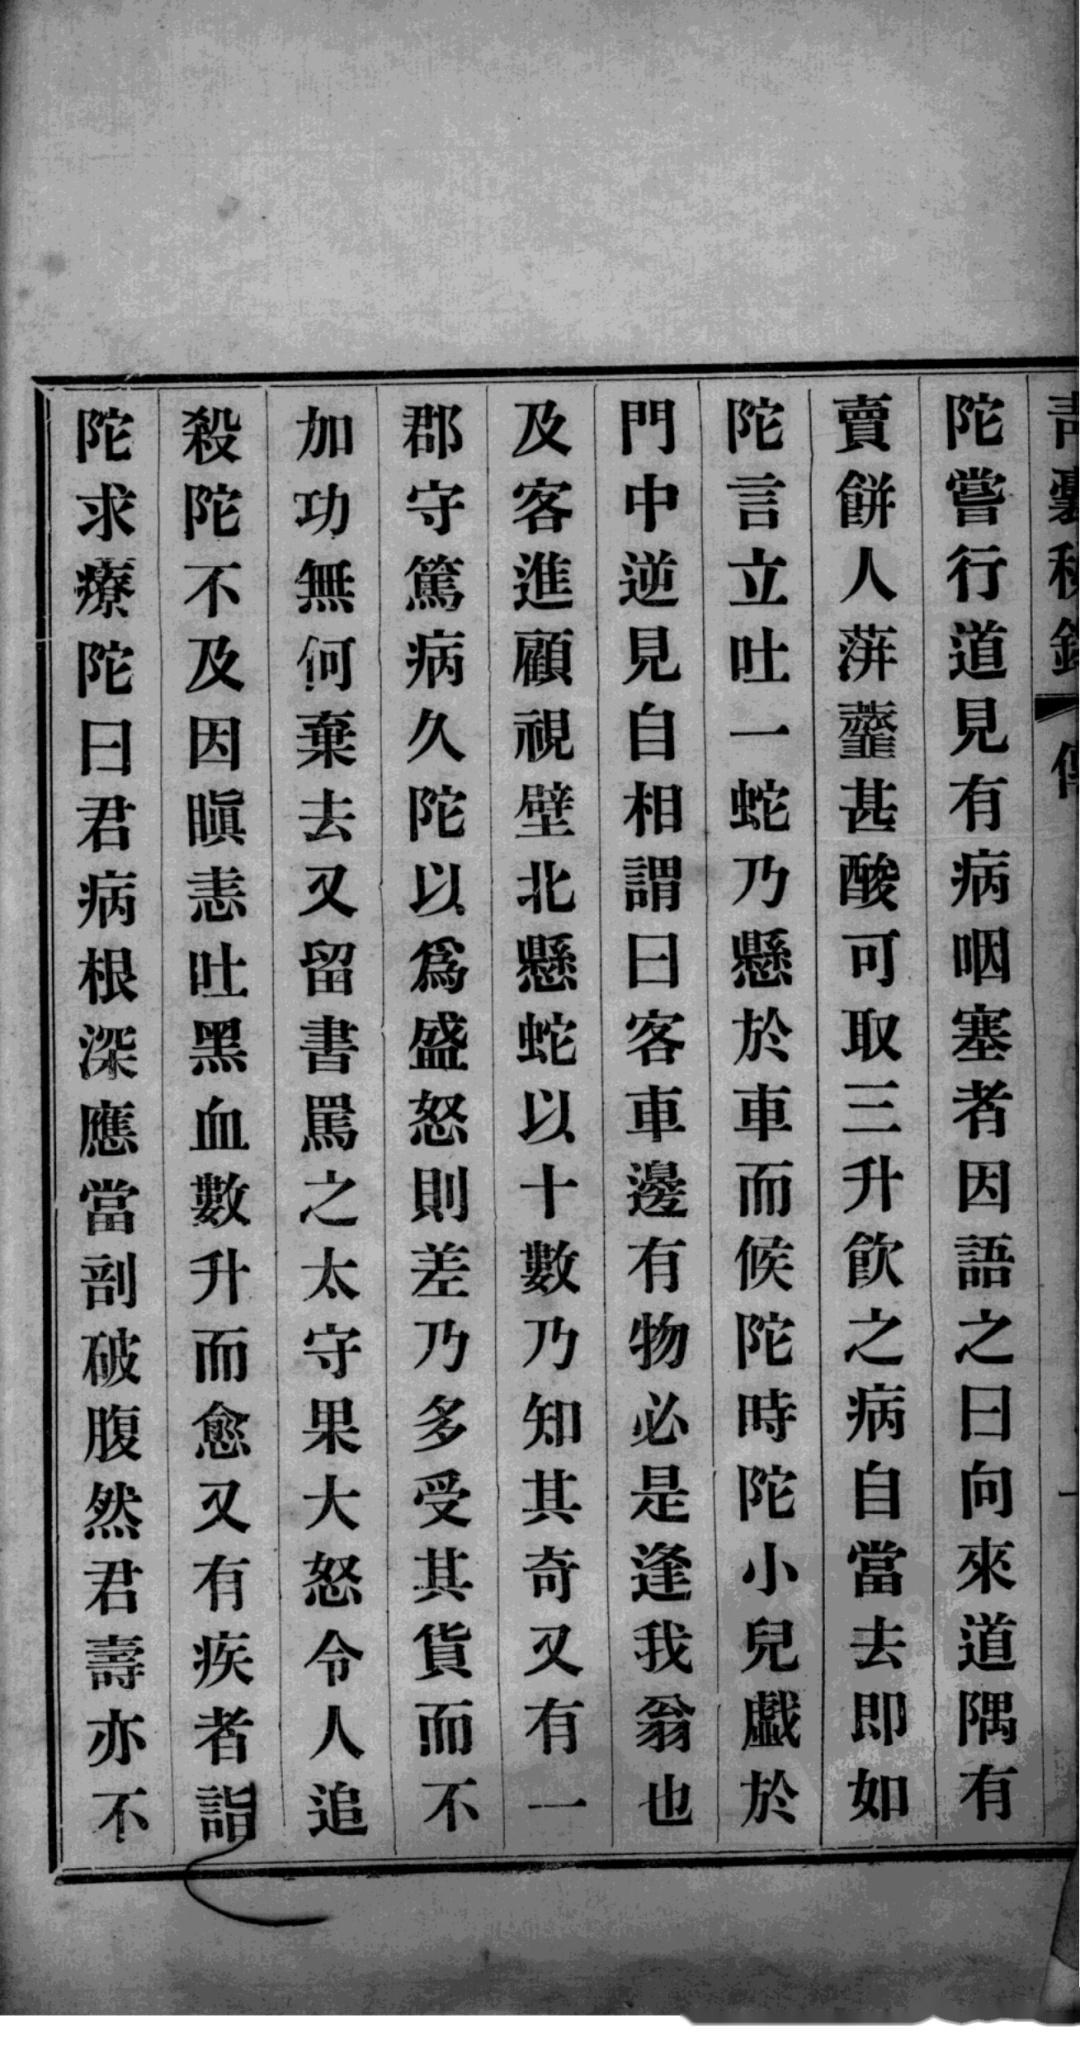 陀嘗行道見有病咽塞者因語之曰向來道隅有
賣餅人蓱虀甚酸可取三升飲之病自當去即如
陀言立吐一蛇乃懸於車而候陀時陀小兒戲於
門中逆見自相謂曰客車邊有物必是逢我翁也
及客進顧視壁北懸蛇以十數乃知其奇又有一
郡守篤病久陀以爲盛怒則差乃多受其貨而不
加功無何棄去又留書罵之太守果大怒令人追
殺陀不及因瞋恚吐黑血數升而愈又有疾者詣
陀求療陀曰君病根深應當剖破腹然君壽亦不